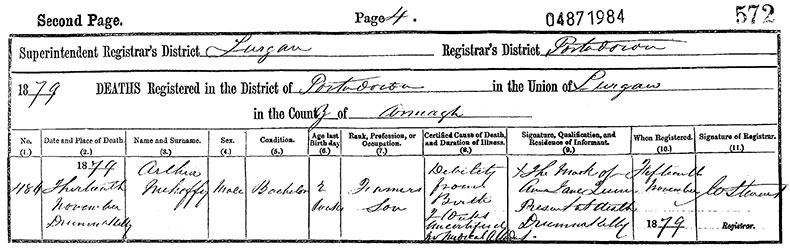 Second Page. Page 4. 04871984 572
Superintendent Registrar's District Lurgan Registrar's District Portadown
1879 DEATHS Registered in the District of Portadown in the Union of Lurgan
in the County of Armagh
No. (1.) Date and Place of Death. (2.) Name and Surname. (3.) Sex. (4.) Condition. (5.) Age last Birthday (6.) Rank, Profession, or Occupation. (7.) Certified Cause of Death, and Duration of Illness. (8.) Signature, Qualification, and Residence of Informant. (9.) When Registered. (10.) Signature of Registrar. (11.)
1879
Thirteenth
November
Drumnakelly
Arthur
Male
Bachelor
2
weeks
Farmers
Son
Debility
from
Birth
2 Weeks
uncertified
no medical attendt.
X The Mark of
Anne Jane
Present at death
Drumnakelly
Fifteenth
November
1879
Registrar.